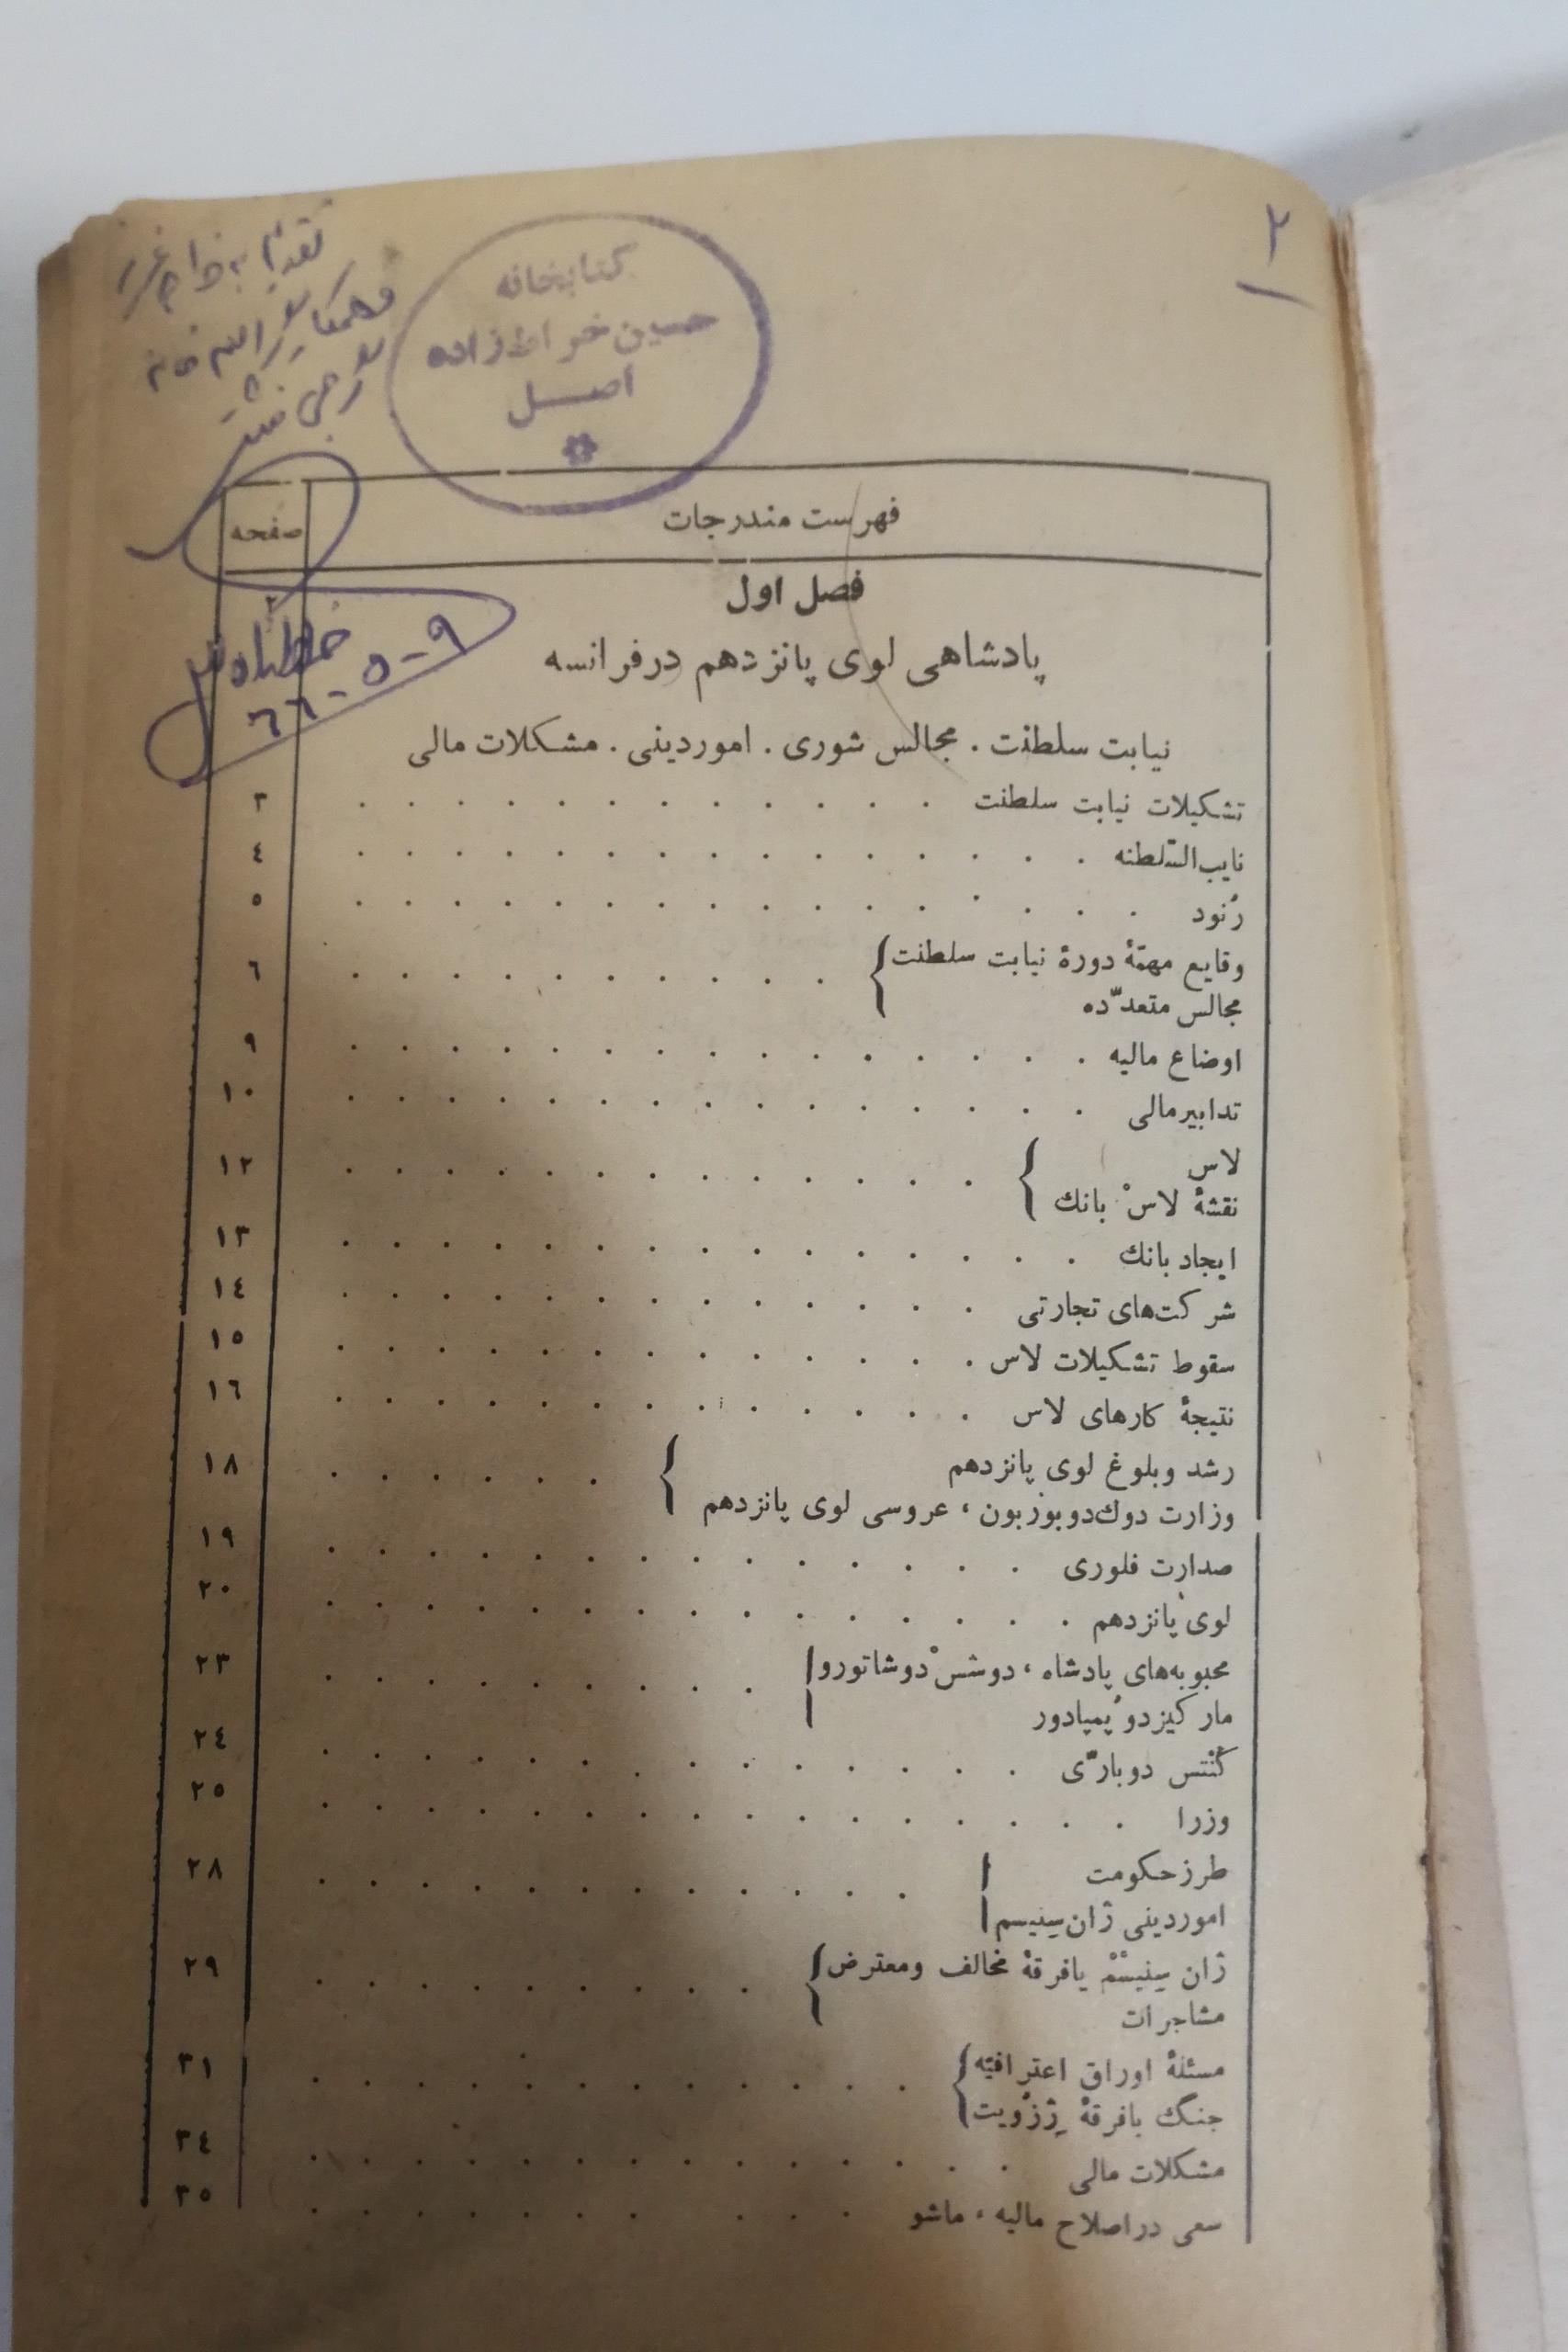 ۲
تقدیم به
کتابخانه
حسین خراط زاده
اصل
فهرست مندرجات
صفحه
فصل اول
۲
پادشاهی لوی پانزدهم در فرانسه
۹-۵-۶۶
نیابت سلطنت . مجالس شوری . امور دینی . مشکلات مالی
تشکیلات نیابت سلطنت . . . . . . . . . . . . ۳
نایب‌السّلطنه . . . . . . . . . . . . . . . ٤
رُنود . . . . . . . . . . . . . . . . ٥
وقایع مهمّهٔ دورهٔ نیابت سلطنت . . . . . . . . . . ٦
مجالس متعدّده
اوضاع مالیه . . . . . . . . . . . . . . . ۹
تدابیر مالی . . . . . . . . . . . . . . . ۱۰
لاس . . . . . . . . . . . . . ۱۲
نقشهٔ لاسْ بانك
ایجاد بانك . . . . . . . . . . . . . . . ۱۳
شرکت‌های تجارتی . . . . . . . . . . . . . ۱٤
سقوط تشکیلات لاس . . . . . . . . . . . . . ۱٥
نتیجهٔ کارهای لاس . . . . . . . . . . . . . ۱٦
رشد و بلوغ لوی پانزدهم . . . . . . ۱۸
وزارت دوك‌دوبوربون ، عروسی لوی پانزدهم
صدارت فلوری . . . . . . . . . . . . . . ۱۹
لوی پانزدهم . . . . . . . . . . . . . . . ۲۰
محبوبه‌های پادشاه ، دوشسْ دوشاتورو . . . . . . . . . ۲۳
مارکیز دوُ پمپادور
کُنْتس دوبارّی . . . . . . . . . . . . . . ۲٤
وزرا . . . . . . . . . . . . . . . . ۲٥
طرز حکومت . . . . . . . . . . . . ۲۸
امور دینی ژان‌سِنیسم
ژان سِنیسْمْ یا فرقهٔ مخالف و معترض . . . . . . . . . ۲۹
مشاجرات
مسئلهٔ اوراق اعترافیّه . . . . . . . . . . . . ۳۱
جنگ با فرقهٔ ژِزُویت
مشکلات مالی . . . . . . . . . . . . . . ۳٤
سعی در اصلاح مالیه ، ماشو . . . . . . . . . . ۳٥